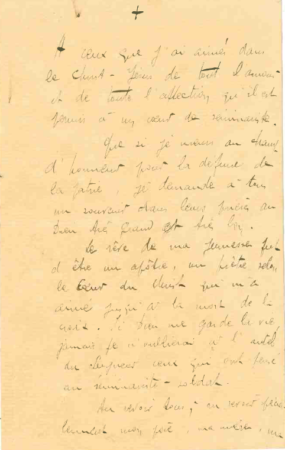 +
A ceux que j'ai aimés dans
le Christ-Jésus de tout l'amour
et de toute l'affection qu'il est
permis à un cœur de séminariste.
Que si je meurs au champ
d'honneur pour la défense de
la patrie, je demande à tous
un souvenir dans leurs prières au
Dieu très grand et très bon.
Le rêve de ma jeunesse fut
d'être un apôtre, un prêtre selon
le Cœur du Christ qui m'a
aimé jusqu'à la mort de la
croix. Si Dieu me garde la vie,
jamais je n'oublierai à l'autel
du Seigneur ceux qui ont
au séminariste-soldat.
Au revoir tous, au revoir
mon père, ma mère,